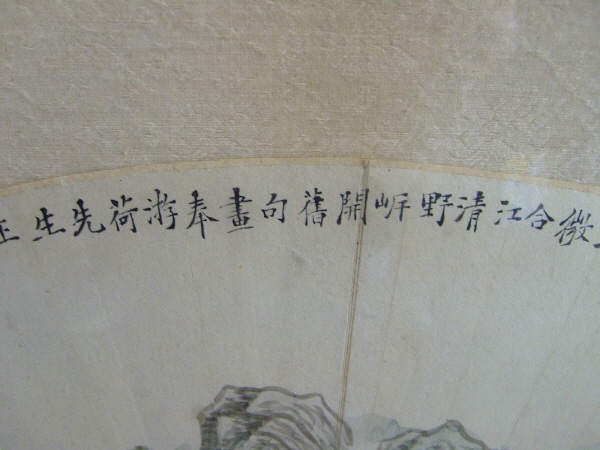 微合江清野岍開舊句畫奉游荷先生